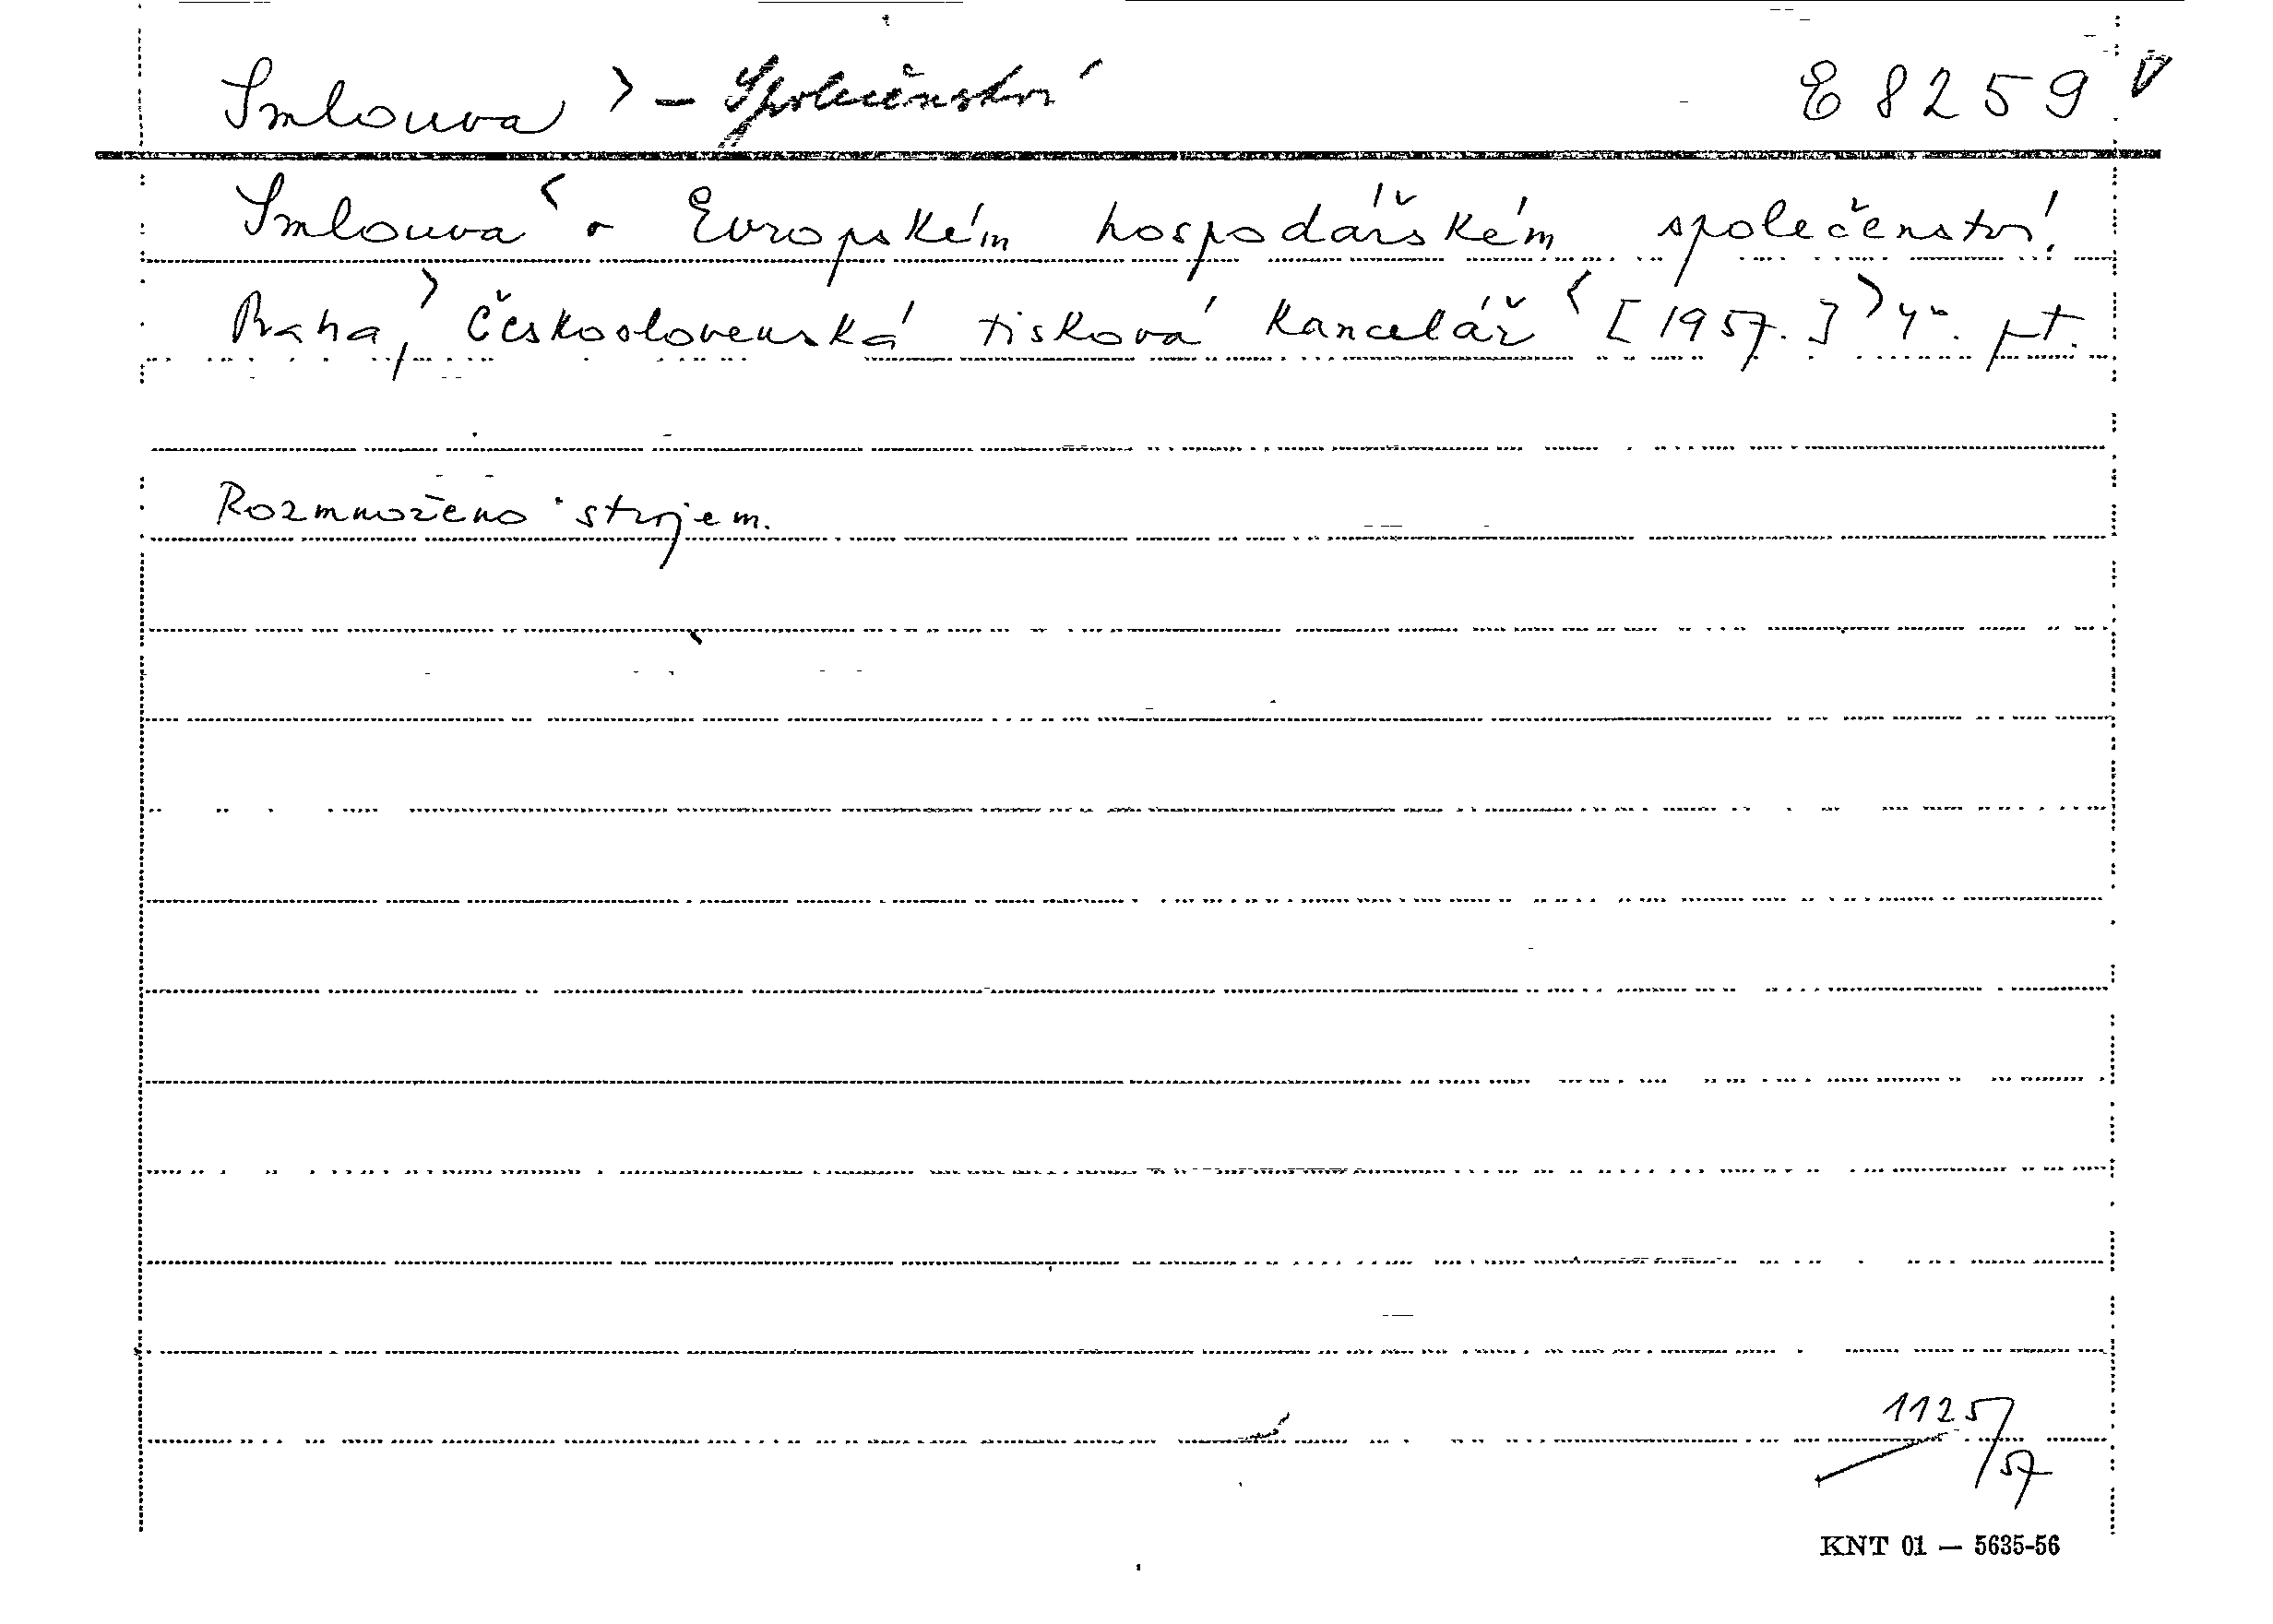 Smlouva > – Společenství E 8259
Smlouva < o Evropském hospodářském společenství.
Praha, > Československá tisková kancelář < [1957.] > 4°. pt.
Rozmnoženo strojem.
1125/57
KNT 01 — 5635-56